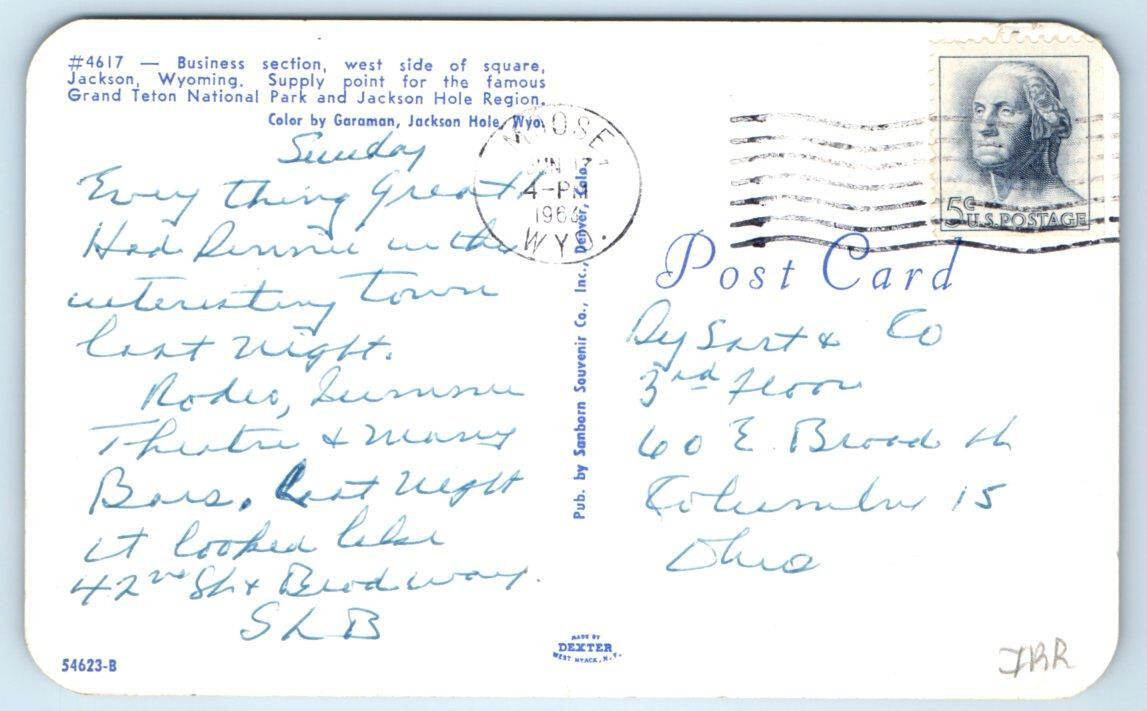 #4617 — Business section, west side of square,
Jackson, Wyoming. Supply point for the famous
Grand Teton National Park and Jackson Hole Region.
Color by Garaman, Jackson Hole, Wyo.
Sunday
Every thing Great
Had Dinner in the
interesting town
last night.
Rodeo, Summer
Theatre & Many
Bars. Last night
it looked like
42nd St & Broadway.
SLB
54623-B
MOOSE
JUN 17
4-PM
1963
WYO.
Pub. by Sanborn Souvenir Co., Inc., Denver, Colo.
MADE BY
DEXTER
WEST NYACK, N.Y.
5c
U.S. POSTAGE
Post Card
DySart & Co
3rd Floor
60 E. Broad St
Columbus 15
Ohio